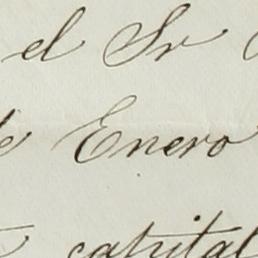 el Sr
de Enero
capital